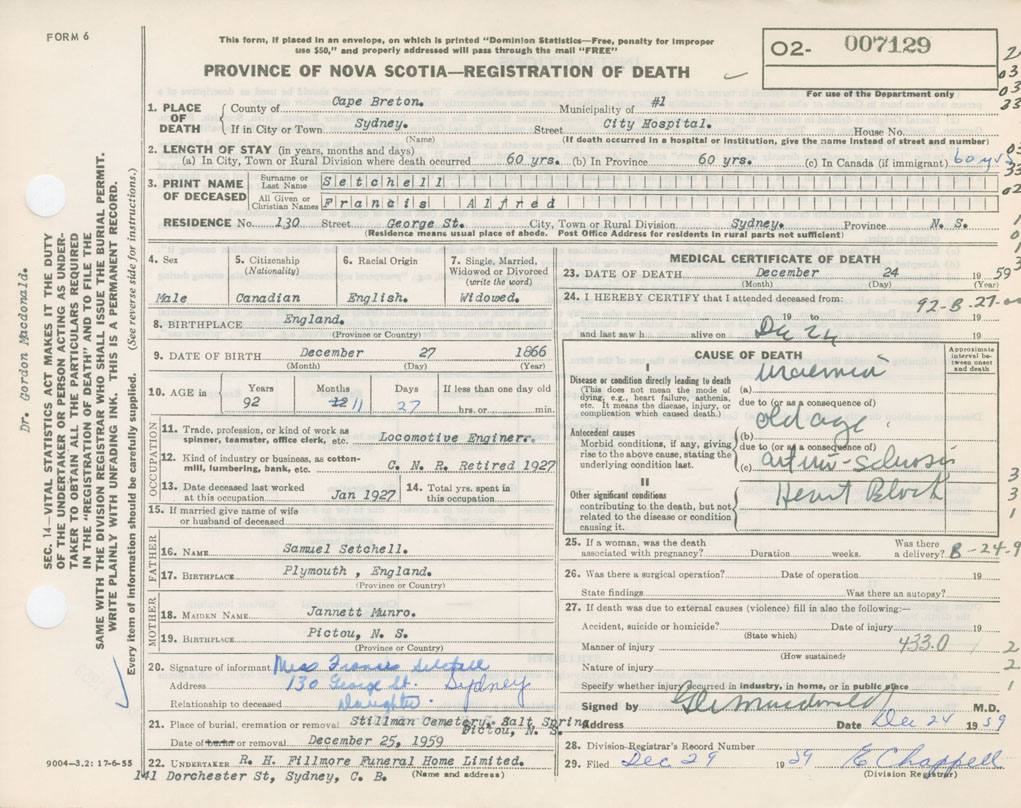 FORM 6
This form, if placed in an envelope, on which is printed "Dominion Statistics—Free, penalty for improper
use $50," and properly addressed will pass through the mail "FREE"
PROVINCE OF NOVA SCOTIA—REGISTRATION OF DEATH
O2- 007129
For use of the Department only
1. PLACE OF DEATH
County of Cape Breton. Municipality of #1
If in City or Town Sydney. Street City Hospital. House No.
(Name) (If death occurred in a hospital or institution, give the name instead of street and number)
2. LENGTH OF STAY (in years, months and days)
(a) In City, Town or Rural Division where death occurred 60 yrs. (b) In Province 60 yrs. (c) In Canada (if immigrant) 60 yrs
3. PRINT NAME OF DECEASED
Surname or Last Name Setchell
All Given or Christian Names Francis Alfred
RESIDENCE No. 130 Street George St. City, Town or Rural Division Sydney. Province N. S.
(Residence means usual place of abode. Post Office Address for residents in rural parts not sufficient)
4. Sex
Male
5. Citizenship
(Nationality)
Canadian
6. Racial Origin
English.
7. Single, Married,
Widowed or Divorced
(write the word)
Widowed.
8. BIRTHPLACE England.
(Province or Country)
9. DATE OF BIRTH December 27 1866
(Month) (Day) (Year)
10. AGE in
Years Months Days If less than one day old
92 12 11 27 hrs. or min.
OCCUPATION
11. Trade, profession, or kind of work as
spinner, teamster, office clerk, etc. Locomotive Enginer.
12. Kind of industry or business, as cotton-
mill, lumbering, bank, etc. C. N. R. Retired 1927
13. Date deceased last worked
at this occupation Jan 1927
14. Total yrs. spent in
this occupation
15. If married give name of wife
or husband of deceased
FATHER
16. NAME Samuel Setchell.
17. BIRTHPLACE Plymouth , England.
(Province or Country)
MOTHER
18. MAIDEN NAME Jannett Munro.
19. BIRTHPLACE Pictou, N. S.
(Province or Country)
20. Signature of informant Miss Frances Setchell
Address 130 George St. Sydney
Relationship to deceased Daughter
21. Place of burial, cremation or removal Stillman Cemetery, Salt Spring
Pictou, N. S.
Date of burial or removal December 25, 1959
22. UNDERTAKER R. H. Fillmore Funeral Home Limited.
141 Dorchester St, Sydney, C. B. (Name and address)
9004—3.2: 17-6-55
MEDICAL CERTIFICATE OF DEATH
23. DATE OF DEATH December 24 19 59
(Month) (Day) (Year)
24. I HEREBY CERTIFY that I attended deceased from:
92-B-27-00
19 to 19
and last saw h alive on Dec 24 19
CAUSE OF DEATH
Approximate
interval be-
tween onset
and death
I
Disease or condition directly leading to death
(This does not mean the mode of
dying, e.g., heart failure, asthenia,
etc. It means the disease, injury, or
complication which caused death.)
(a) Uraemia
due to (or as a consequence of)
Antecedent causes
Morbid conditions, if any, giving
rise to the above cause, stating the
underlying condition last.
(b) old age
due to (or as a consequence of)
(c) arterio-sclerosis
II
Other significant conditions
contributing to the death, but not
related to the disease or condition
causing it.
Heart Block
25. If a woman, was the death
associated with pregnancy? Duration weeks. Was there
a delivery? B-24-9
26. Was there a surgical operation? Date of operation 19
State findings Was there an autopsy?
27. If death was due to external causes (violence) fill in also the following:—
Accident, suicide or homicide? Date of injury 19
(State which)
Manner of injury 433.0
(How sustained)
Nature of injury
Specify whether injury occurred in industry, in home, or in public place
Signed by G Macdonald M.D.
Address Date Dec 24 19 59
28. Division-Registrar's Record Number
29. Filed Dec 29 19 59 E Chappell
(Division Registrar)
Dr. Gordon Macdonald.
SEC. 14—VITAL STATISTICS ACT MAKES IT THE DUTY
OF THE UNDERTAKER OR PERSON ACTING AS UNDER-
TAKER TO OBTAIN ALL THE PARTICULARS REQUIRED
IN THE "REGISTRATION OF DEATH" AND TO FILE THE
SAME WITH THE DIVISION REGISTRAR WHO SHALL ISSUE THE BURIAL PERMIT.
WRITE PLAINLY WITH UNFADING INK. THIS IS A PERMANENT RECORD.
Every item of information should be carefully supplied. (See reverse side for instructions.)